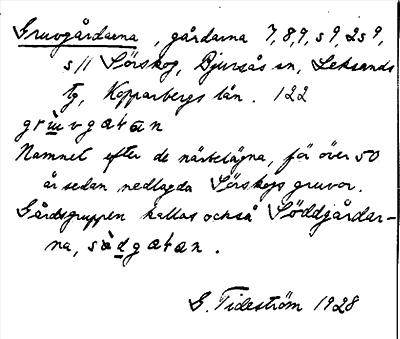 Gruvgårdarna, gårdarna 7, 8, 9, s 9, 2s 9,
s 11 Sörskog, Bjursås sn, Leksands
tg, Kopparbergs län. 122
Namnet efter de närbelägna, för över 50
år sedan nedlagda Sörskogs gruvor.
Gårdsgruppen kallas också Söddgårdar-
na,
G. Tideström 1928